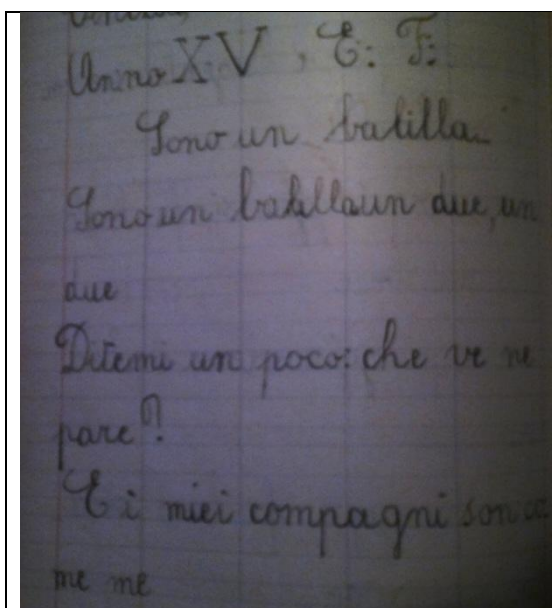 Anno XV, E: F:
Sono un balilla..
Sono un balilla un due, un
due
Ditemi un poco: che ve ne
pare?
E i miei compagni son co
me me